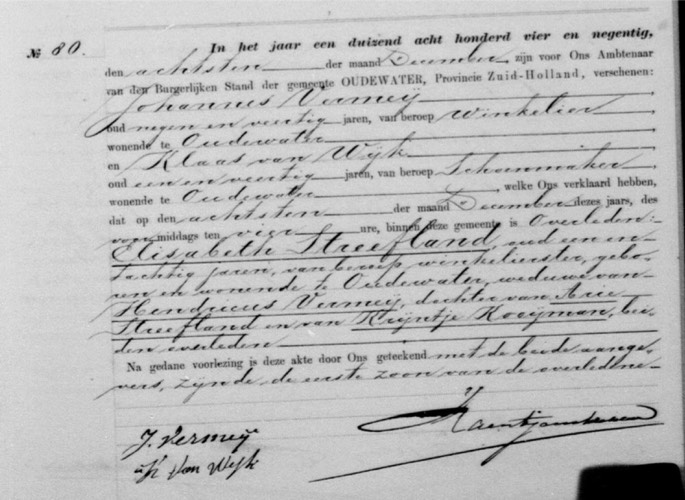 № 80. In het jaar een duizend acht honderd vier en negentig,
den achtsten der maand December, zijn voor Ons Ambtenaar
van den Burgerlijken Stand der gemeente OUDEWATER, Provincie Zuid-Holland, verschenen:
Johannes Vermeij
oud negen en veertig jaren, van beroep Winkelier,
wonende te Oudewater,
en Klaas van Wijk
oud een en veertig jaren, van beroep Schoenmaker,
wonende te Oudewater, welke Ons verklaard hebben,
dat op den achtsten der maand December dezes jaars, des
voormiddags ten vier ure, binnen deze gemeente is Overleden:
Elisabeth Streefland, oud een en
tachtig jaren, van beroep winkelierster, gebo-
ren en wonende te Oudewater, weduwe van
Hendricus Vermeij, dochter van Arie
Streefland en van Krijntje Kooijman, bei-
den overleden
Na gedane voorlezing is deze akte door Ons geteekend met de beide aange-
vers, zijnde de eerste zoon van de overledene
J. Vermeij
K van Wijk